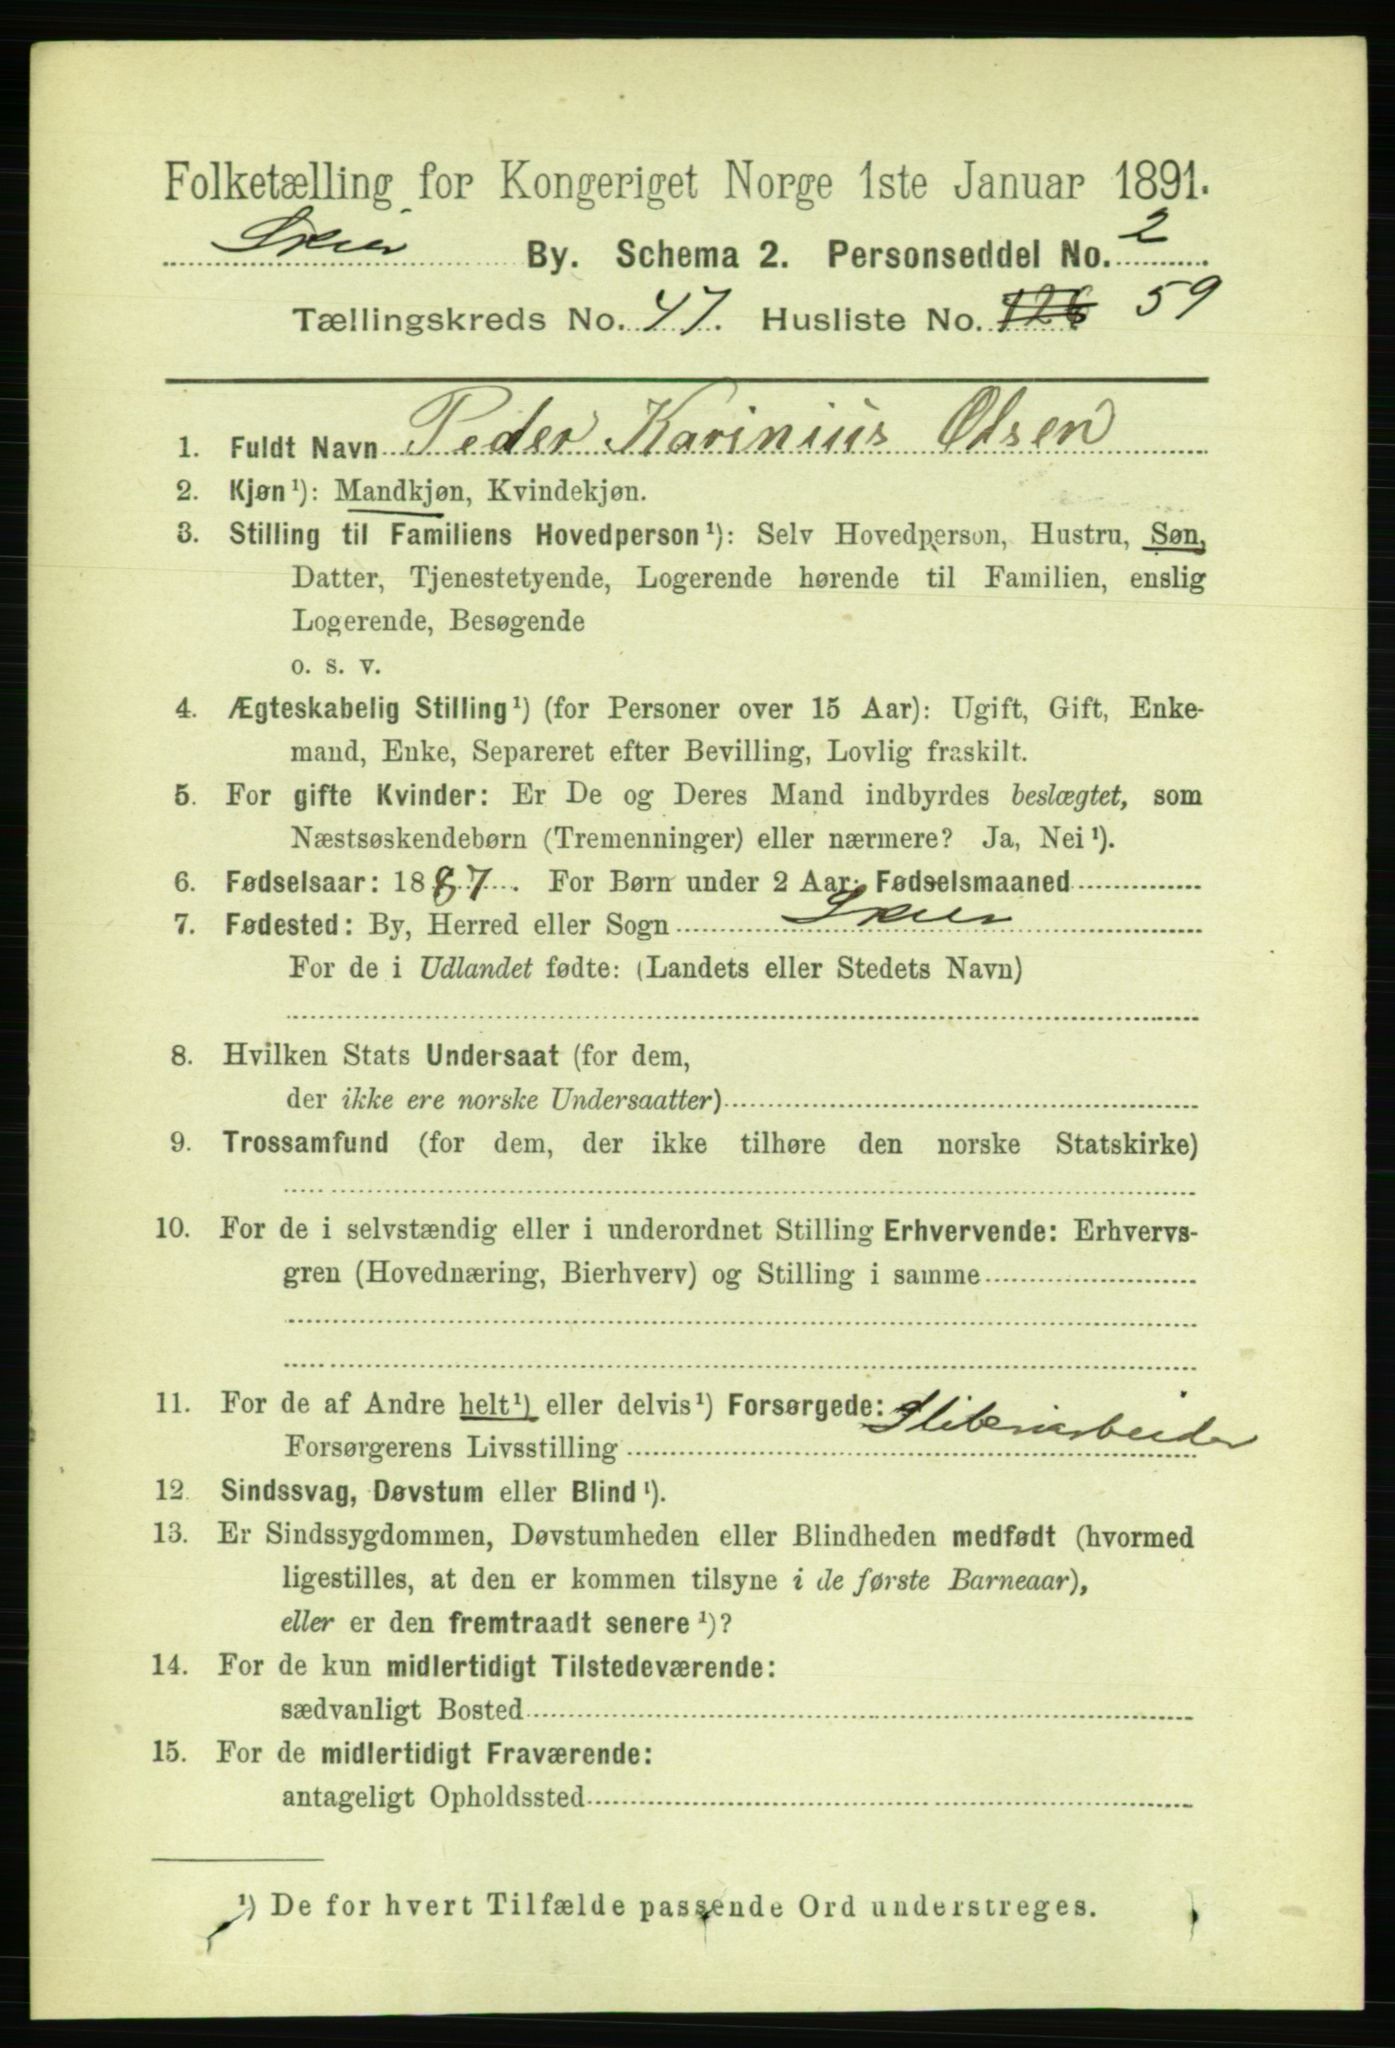 Folketælling for Kongeriget Norge 1ste Januar 1891.
Skien By. Schema 2. Personseddel No. 2
Tællingskreds No. 47. Husliste No. 126 59
1. Fuldt Navn Peder Karinius Olsen
2. Kjøn¹): Mandkjøn, Kvindekjøn.
3. Stilling til Familiens Hovedperson¹): Selv Hovedperson, Hustru, Søn,
Datter, Tjenestetyende, Logerende hørende til Familien, enslig
Logerende, Besøgende
o. s. v.
4. Ægteskabelig Stilling¹) (for Personer over 15 Aar): Ugift, Gift, Enke-
mand, Enke, Separeret efter Bevilling, Lovlig fraskilt.
5. For gifte Kvinder: Er De og Deres Mand indbyrdes beslægtet, som
Næstsøskendebørn (Tremenninger) eller nærmere? Ja, Nei¹).
6. Fødselsaar: 1887. For Børn under 2 Aar: Fødselsmaaned
7. Fødested: By, Herred eller Sogn Skien
For de i Udlandet fødte: (Landets eller Stedets Navn)
8. Hvilken Stats Undersaat (for dem,
der ikke ere norske Undersaatter)
9. Trossamfund (for dem, der ikke tilhøre den norske Statskirke)
10. For de i selvstændig eller i underordnet Stilling Erhvervende: Erhvervs-
gren (Hovednæring, Bierhverv) og Stilling i samme
11. For de af Andre helt¹) eller delvis¹) Forsørgede:
Forsørgerens Livsstilling Sliberiarbeider
12 Sindssvag, Døvstum eller Blind¹).
13. Er Sindssygdommen, Døvstumheden eller Blindheden medfødt (hvormed
ligestilles, at den er kommen tilsyne i de første Barneaar),
eller er den fremtraadt senere¹)?
14. For de kun midlertidigt Tilstedeværende:
sædvanligt Bosted
15. For de midlertidigt Fraværende:
antageligt Opholdssted
¹) De for hvert Tilfælde passende Ord understreges.